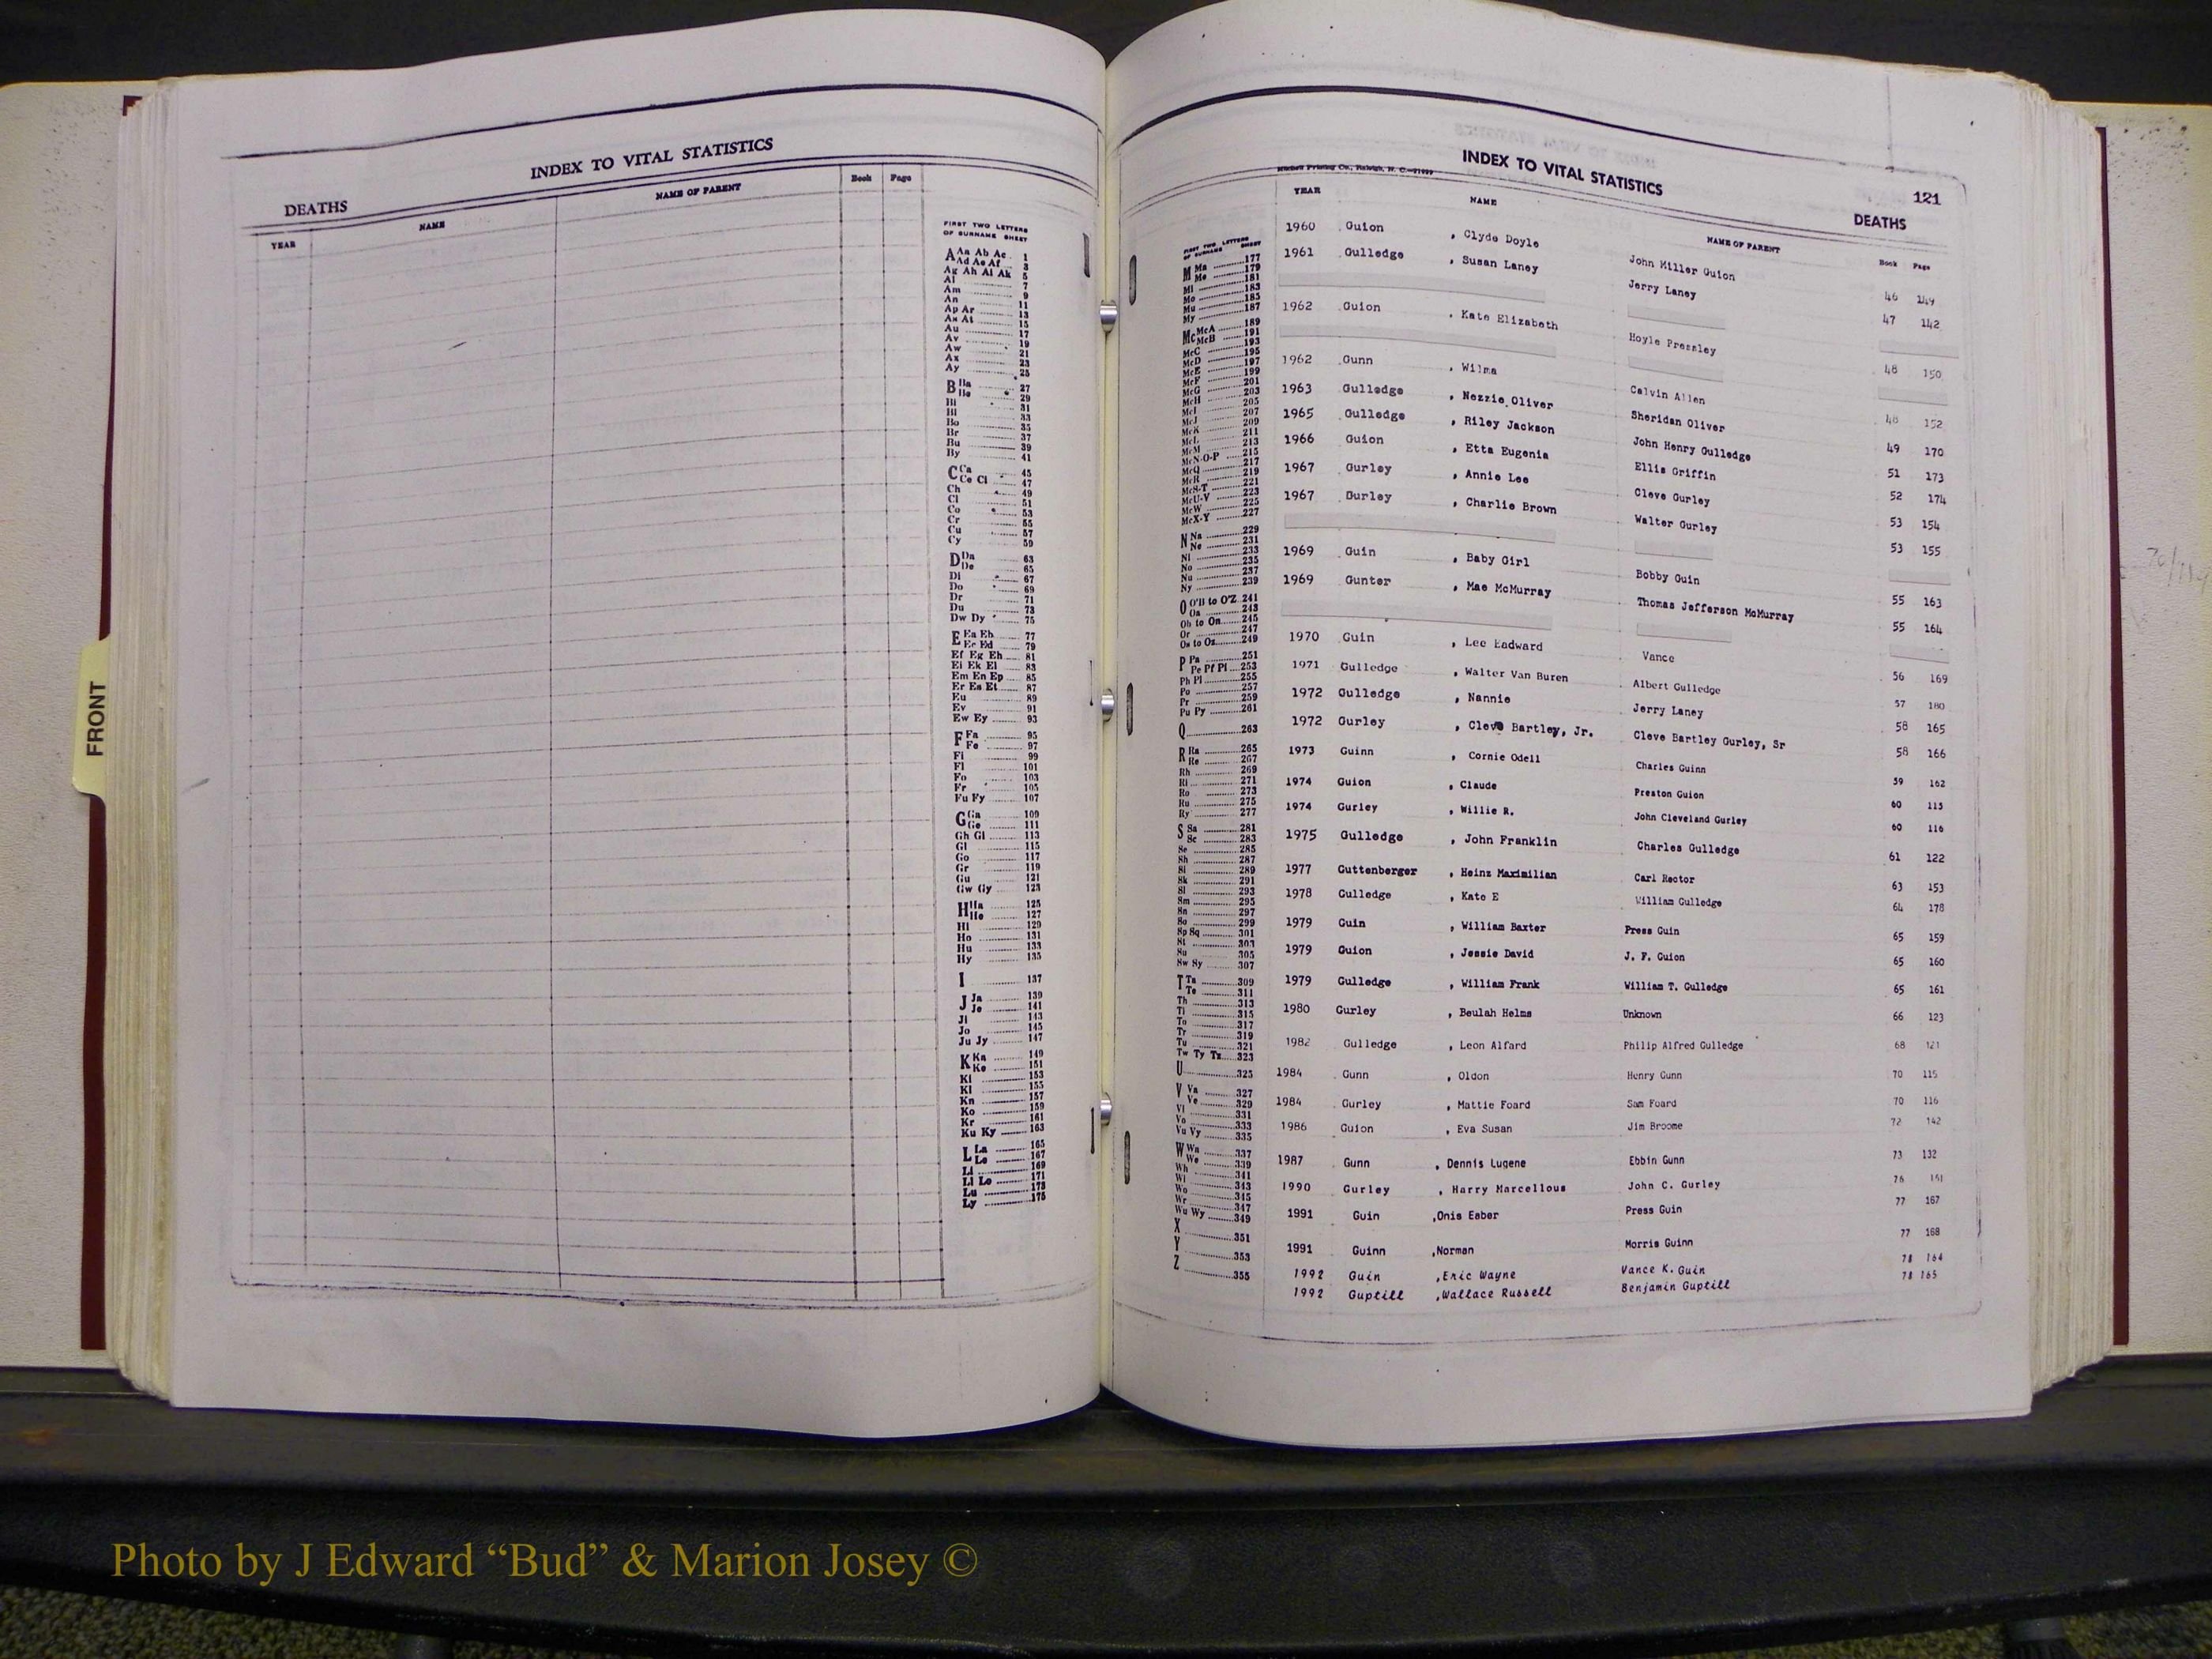 INDEX TO VITAL STATISTICS
DEATHS
YEAR NAME NAME OF PARENT Book Page
FIRST TWO LETTERS
OF SURNAME SHEET
A Aa Ab Ac 1
Ad Ae Af 3
Ag Ah Ai Ak 5
Al 7
Am 9
An 11
Ap Ar 13
As At 15
Au 17
Av 19
Aw 21
Ax 23
Ay 25
B Ba 27
Be 29
Bi 31
Bl 33
Bo 35
Br 37
Bu 39
By 41
C Ca 45
Ce Ci 47
Ch 49
Cl 51
Co 53
Cr 55
Cu 57
Cy 59
D Da 63
De 65
Di 67
Do 69
Dr 71
Du 73
Dw Dy 75
E Ea Eb 77
Ec Ed 79
Ef Eg Eh 81
Ei Ek El 83
Em En Ep 85
Er Es Et 87
Eu 89
Ev 91
Ew Ey 93
F Fa 95
Fe 97
Fi 99
Fl 101
Fo 103
Fr 105
Fu Fy 107
G Ga 109
Ge 111
Gh Gi 113
Gl 115
Go 117
Gr 119
Gu 121
Gw Gy 123
H Ha 125
He 127
Hi 129
Ho 131
Hu 133
Hy 135
I 137
J Ja 139
Je 141
Ji 143
Jo 145
Ju Jy 147
K Ka 149
Ke 151
Ki 153
Kl 155
Kn 157
Ko 159
Kr 161
Ku Ky 163
L La 165
Le 167
Li 169
Ll Lo 171
Lu 173
Ly 175
FRONT
Mitchell Printing Co., Raleigh, N. C.
INDEX TO VITAL STATISTICS
121
DEATHS
YEAR NAME NAME OF PARENT Book Page
FIRST TWO LETTERS
OF SURNAME SHEET
M Ma 177
Me 179
Mi 181
Mo 183
Mu 185
My 187
Mc McA 189
McB 191
McC 193
McD 195
McE 197
McF 199
McG 201
McH 203
McI 205
McJ 207
McK 209
McL 211
McM 213
McN-O-P 215
McQ 217
McR 219
McS-T 221
McU-V 223
McW 225
McX-Y 227
N Na 229
Ne 231
Ni 233
No 235
Nu 237
Ny 239
O O'B to O'Z 241
Oa 243
Ob to On 245
Or 247
Os to Oz 249
P Pa 251
Pe Pf Pi 253
Ph Pl 255
Po 257
Pr 259
Pu Py 261
Q 263
R Ra 265
Re 267
Rh 269
Ri 271
Ro 273
Ru 275
Ry 277
S Sa 281
Sc 283
Se 285
Sh 287
Si 289
Sk 291
Sl 293
Sm 295
Sn 297
So 299
Sp Sq 301
St 303
Su 305
Sw Sy 307
T Ta 309
Te 311
Th 313
Ti 315
To 317
Tr 319
Tu 321
Tw Ty Tz 323
U 325
V Va 327
Ve 329
Vi 331
Vo 333
Vu Vy 335
W Wa 337
We 339
Wh 341
Wi 343
Wo 345
Wr 347
Wu Wy 349
X 351
Y 353
Z 355
1960 Guion , Clyde Doyle John Miller Guion 46 149
1961 Gulledge , Susan Laney Jerry Laney 47 142
1962 Guion , Kate Elizabeth Hoyle Pressley 48 150
1962 Gunn , Wilma Calvin Allen 48 152
1963 Gulledge , Nezzie Oliver Sheridan Oliver 49 170
1965 Gulledge , Riley Jackson John Henry Gulledge 51 173
1966 Guion , Etta Eugenia Ellis Griffin 52 174
1967 Gurley , Annie Lee Cleve Gurley 53 154
1967 Gurley , Charlie Brown Walter Gurley 53 155
1969 Guin , Baby Girl Bobby Guin 55 163
1969 Gunter , Mae McMurray Thomas Jefferson McMurray 55 164
1970 Guin , Lee Eadward Vance 56 169
1971 Gulledge , Walter Van Buren Albert Gulledge 57 180
1972 Gulledge , Nannie Jerry Laney 58 165
1972 Gurley , Cleve Bartley, Jr. Cleve Bartley Gurley, Sr 58 166
1973 Guinn , Cornie Odell Charles Guinn 59 162
1974 Guion , Claude Preston Guion 60 115
1974 Gurley , Willie R. John Cleveland Gurley 60 116
1975 Gulledge , John Franklin Charles Gulledge 61 122
1977 Guttenberger , Heinz Maximilian Carl Rector 63 153
1978 Gulledge , Kate E William Gulledge 64 178
1979 Guin , William Baxter Press Guin 65 159
1979 Guion , Jessie David J. F. Guion 65 160
1979 Gulledge , William Frank William T. Gulledge 65 161
1980 Gurley , Beulah Helms Unknown 66 123
1982 Gulledge , Leon Alfard Philip Alfred Gulledge 68 121
1984 Gunn , Oldon Henry Gunn 70 115
1984 Gurley , Mattie Foard Sam Foard 70 116
1986 Guion , Eva Susan Jim Broome 72 142
1987 Gunn , Dennis Lugene Ebbin Gunn 73 132
1990 Gurley , Harry Marcellous John C. Gurley 76 151
1991 Guin ,Onis Esber Press Guin 77 167
1991 Guinn ,Norman Morris Guinn 77 168
1992 Guin ,Eric Wayne Vance K. Guin 78 164
1992 Guptill ,Wallace Russell Benjamin Guptill 78 165
Photo by J Edward “Bud” & Marion Josey ©